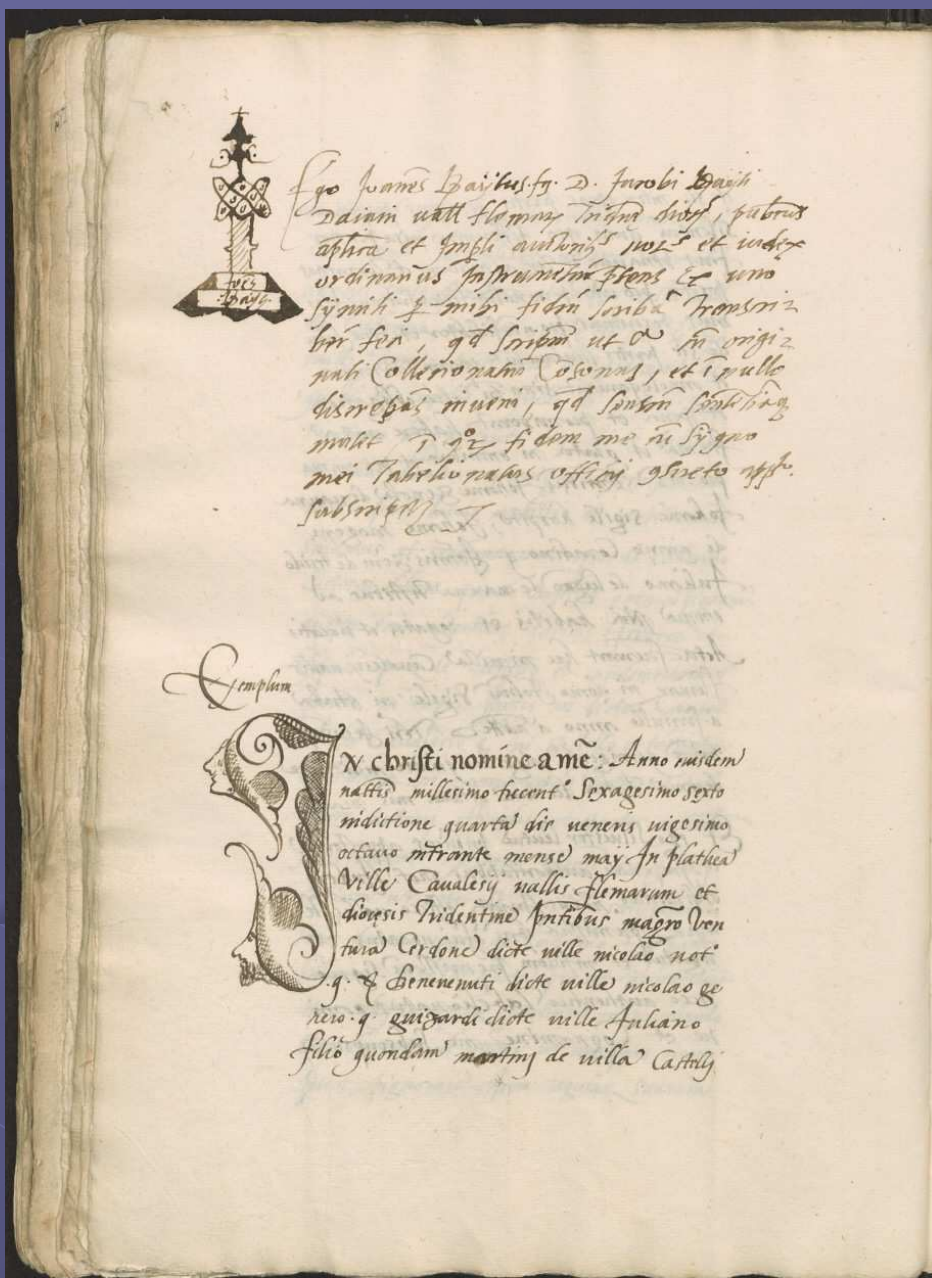 Ego Joanes Baÿlus fq. D. Jacobi Bayli
Daiain vall flemar Tridne dioc, publicus
aplica et Impli auctorits not et iudex
ordinarius Instrumetum pens ex uno
symili p mihi fidm scriba Transcri-
ber feci, qd scriptm ut cu origi-
nali Collecionatum Cosonus, et i nullo
discrepas inveni, qd sensum sententiaq
mutet i quor fidem me cu sygno
mei Tabelionatus officij gsueto appto.
subscripsi
Joes
Bayls
Exemplum
IN christi nomine amē: Anno euisdem
nattis millesimo trecent° Sexagesimo sexto
indictione quarta die veneris vigesimo
octavo intrante mense maÿ In plathea
Ville Cavalesij vallis flemarum et
diocesis Tridentine pntibus magro Ven
tura Cerdone dicte ville nicolao not°
.q. benevenuti dicte ville nicolao ge
nero .q. guizardi dicte ville Juliano
filio quondam martinj de villa Castelj